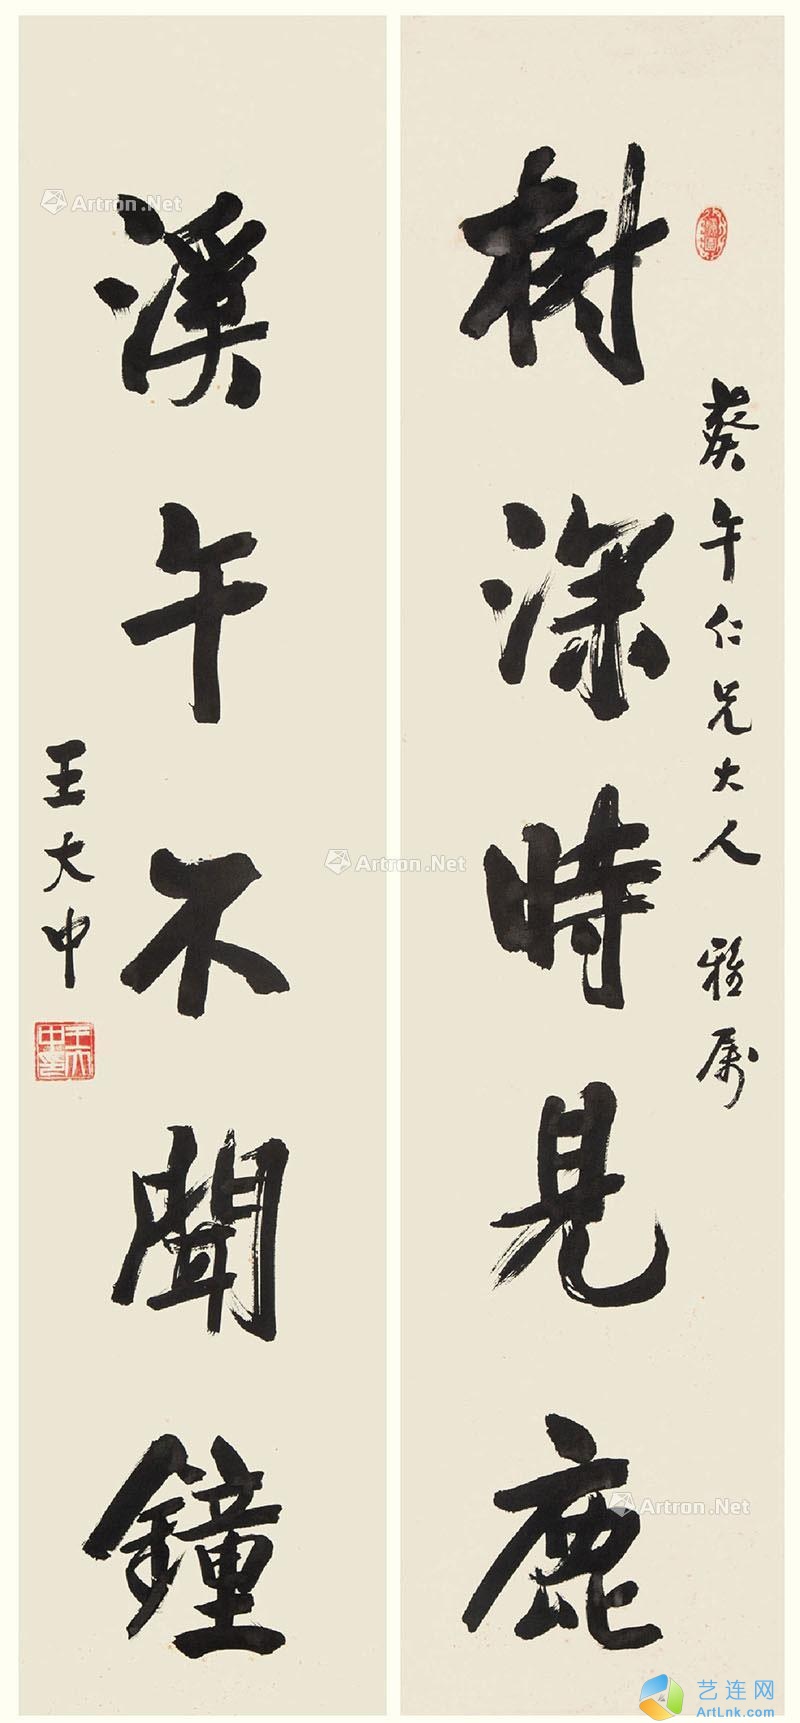 樹深時見鹿
癸午仁兄大人 雅屬
溪午不聞鐘
王大中
Artron.Net
Artron.Net
Artron.Net
艺连网
ArtLnk.com